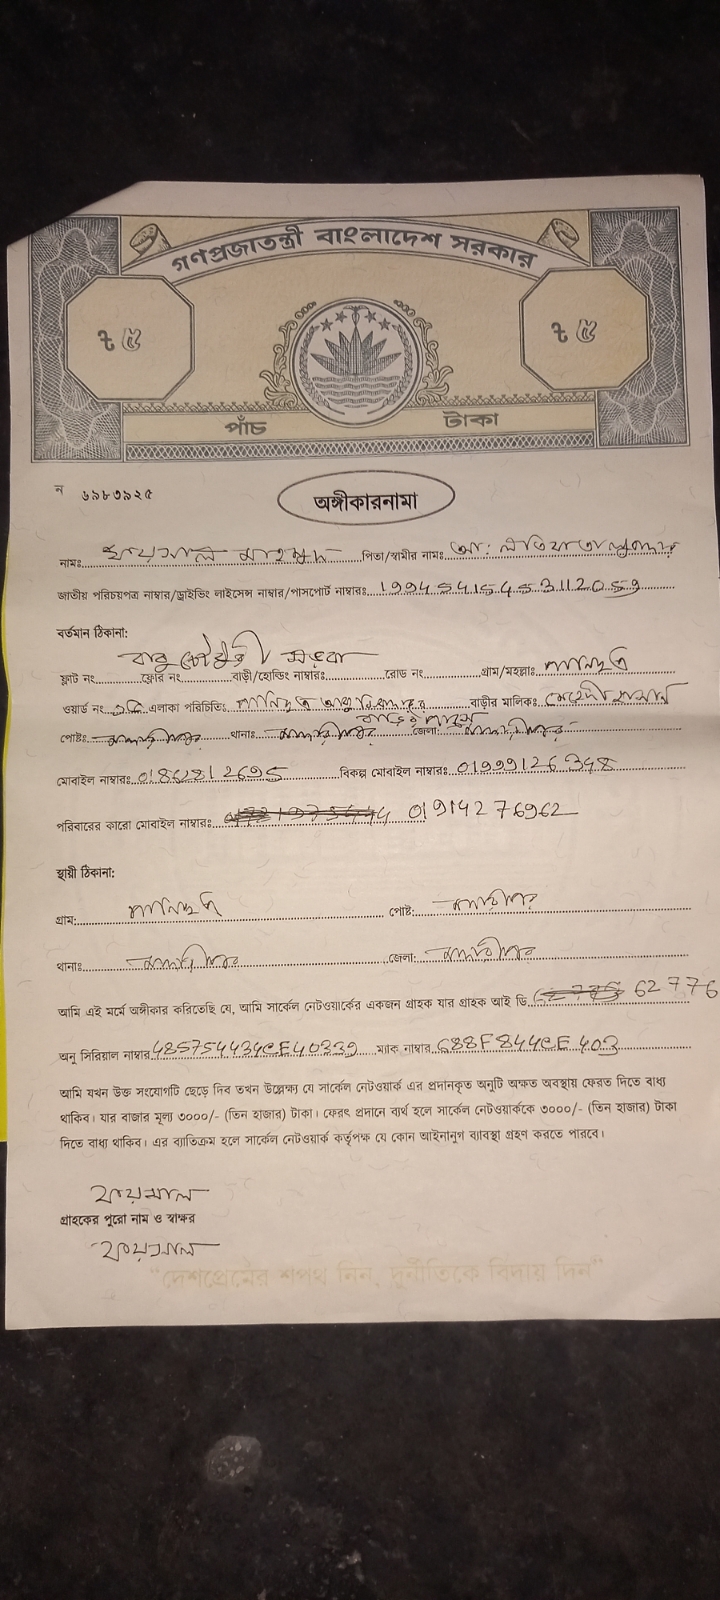 গণপ্রজাতন্ত্রী বাংলাদেশ সরকার
৳ ৫ ৳ ৫
পাঁচ টাকা
ন ৬৯৮৩৯২৫
অঙ্গীকারনামা
নাম: ফয়সাল মাহমুদ পিতা/স্বামীর নাম: আ:
জাতীয় পরিচয়পত্র নাম্বার/ড্রাইভিং লাইসেন্স নাম্বার/পাসপোর্ট নাম্বারঃ 19945415453112059
বর্তমান ঠিকানা:
বাবু চৌধুরী
ফ্লাট নং ফ্লোর নং বাড়ী/হোল্ডিং নাম্বারঃ রোড নং গ্রাম/মহল্লাঃ পানিছত্র
ওয়ার্ড নং এলাকা পরিচিতিঃ পানিছত্র বাড়ীর মালিকঃ মেহেদী হাসান
বাড়ির পাশে
পোষ্টঃ মাদারীপুর থানাঃ মাদারীপুর জেলা: মাদারীপুর
মোবাইল নাম্বারঃ 01862812695 বিকল্প মোবাইল নাম্বারঃ 01999126348
পরিবারের কারো মোবাইল নাম্বারঃ 01914276962
স্থায়ী ঠিকানা:
গ্রাম: পানিছত্র পোষ্ট: মাদারীপুর
থানাঃ মাদারীপুর জেলা: মাদারীপুর
আমি এই মর্মে অঙ্গীকার করিতেছি যে, আমি সার্কেল নেটওয়ার্কের একজন গ্রাহক যার গ্রাহক আই ডি 62776
অনু সিরিয়াল নাম্বার 485754434CE40339 ম্যাক নাম্বার G88F844CE403
আমি যখন উক্ত সংযোগটি ছেড়ে দিব তখন উল্লেক্ষ্য যে সার্কেল নেটওয়ার্ক এর প্রদানকৃত অনুটি অক্ষত অবস্থায় ফেরত দিতে বাধ্য
থাকিব। যার বাজার মূল্য ৩০০০/- (তিন হাজার) টাকা। ফেরৎ প্রদানে ব্যর্থ হলে সার্কেল নেটওয়ার্ককে ৩০০০/- (তিন হাজার) টাকা
দিতে বাধ্য থাকিব। এর ব্যাতিক্রম হলে সার্কেল নেটওয়ার্ক কর্তৃপক্ষ যে কোন আইনানুগ ব্যাবস্থা গ্রহণ করতে পারবে।
ফয়সাল
গ্রাহকের পুরো নাম ও স্বাক্ষর
ফয়সাল
"দেশপ্রেমের শপথ নিন, দুর্নীতিকে বিদায় দিন"